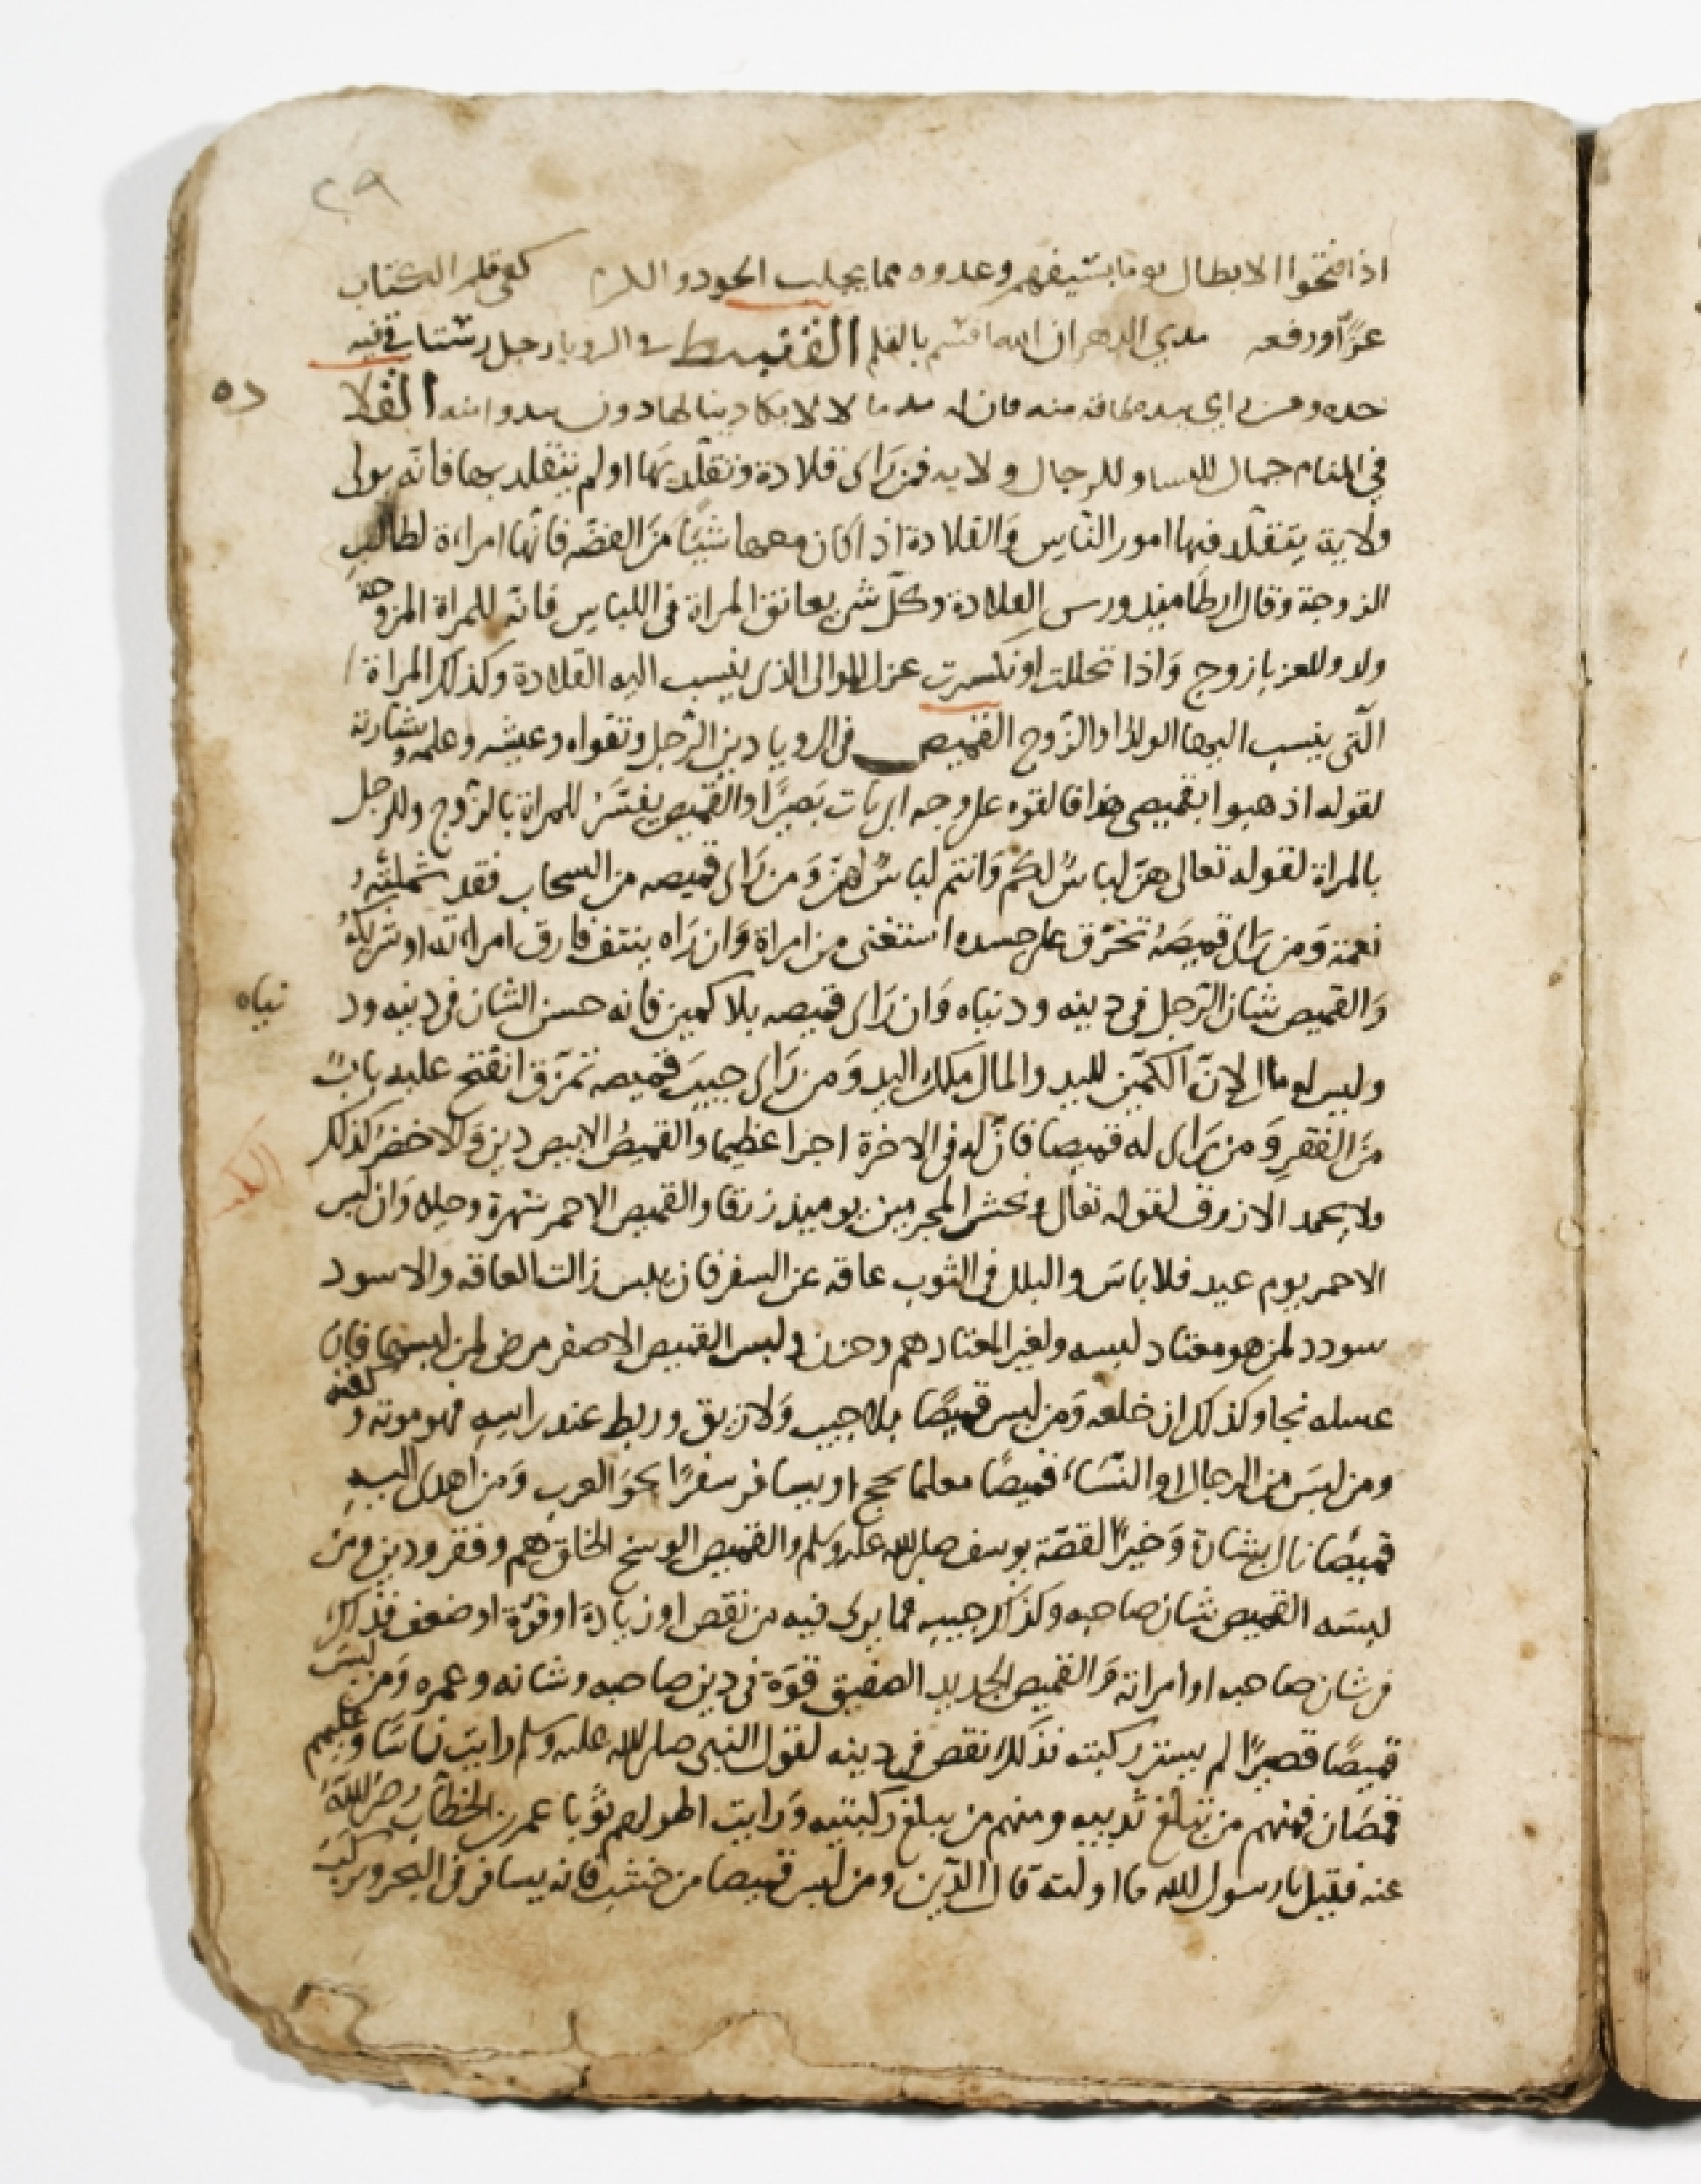 ٢٩
اذا افتخوا الابطال يوما بسيفهم وعدوه مما يجلب الجود والكرم كفى قلم الكتاب
عزًا ورفعه مدي الدهر ان الله اقسم بالقلم القنبيط في الرويا رجل رستاقي فيه
حده ومن راي بيده منه فان الفلا
ده
في المنام جمال للنسا وللرجال ولايه فمن رَاى قلادة وتقلّد بها او لم يتقلد بها فانّه يولى
ولاية يتقلد فيها امور النّاس وَالقلادة اذا كان معها شيًا مِنَ الفضّه فانّها امراءة لطالب
الزوجة وقال ارطاميدورس القلادة وكلّ شى يعانق المراة في اللباس فانّه للمراة المزوجة
ولد وللعزبا زوج وَاذا تحللت او تكسرت عزل الموالى الذى ينسب اليه القلادة وكذلك المراة
الّتى ينسب اليها الولد اوالزّوج القميص فى الرويا دين الرّجل وتقواه وعيشه وعلمه وبشارته
لقوله اذهبوا بقميصى هذا فالقوه على وجه ابى يات بَصيرًا والقميص يفسّر للمراة بالزّوج وللرجل
بالمراة لقوله تعالى هنّ لباسٌ لكم وَانتم لباسٌ لهنّ وَمن رَاى قميصه من السحاب فقد شملته
نعمة وَمن رَاى قميصَهُ تخرّق على جسده استغنى من امراة وَان رَاه ينتف فارق امراته او شريكهُ
وَالقميص شان الرّجل فى دينه ودنياه وَان رَاى قميصه بلا كمين فانه حسن الشان فى دينه ود
نياه
وليس له مال لانّ الكمّين لليد والمال ملك اليد وَمن رَاى جيبَ قميصه تمزّق انفتح عليه بابٌ
مِنَ الفقر وَمن رَاى له قميصا فانّ له فى الاخرة اجرا عظيما والقميصُ الابيض دين وَالاخضرُ كذلك
ولا يحمد الازرق لقوله تعالى ونحشر المجرمين يوميذ زرقا والقميص الاحمر شهرة وان لبس
الاحمر يوم عيد فلا باسَ والبلل فى الثوب عاقه عن السفر فان يبس زالت العاقه والاسود
سودد لمن هو معتاد لبسه ولغير المعتاد هم وحزن ولبس القميص الاصفر مرض لمن لبسها فان
غسله نجا وكذلك ان خلعه وَمن لبس قميصًا بلا جيب وَلا زيق وربط عند راسهِ فهو موته وكفنه
ومن لبسَ من الرجال او النسَاء قميصًا معلما يحج او يسافر سفرًا نحوَ العرب وَمن اهدى اليهِ
قميصًا نال بشارة وَخيرًا لقصّة يوسف صلى الله عليه وسلم والقميص الوسخ الخلق هم وفقر ودين ومن
لبسَه القميص شان صاحبه وكذلك جيبه فما يرى فيه من نقص او زيادة او قوّة او ضعف فذلك
فى شان صاحبه او امراته وَالقميص الجديد الصفيق قوّة فى دين صاحبه وشانه وعمره وَمن لبسَ
قميصًا قصيرًا لم يستر ركبته فذلك نقص فى دينه لقول النبى صلى الله عليه وسلم رايت ناسًا وعليهم
قمصَان فمنهم من تبلغ ثدييه ومنهم من يبلغ ركبتيه وَرايت اطولهم ثوبا عمر بن الخطّابُ رضى اللّهُ
عنه فقيل يا رسول الله ما اولته قال الدّين ومن لبس قميصا من خشب فانه يسافر فى البحر ويركبَ